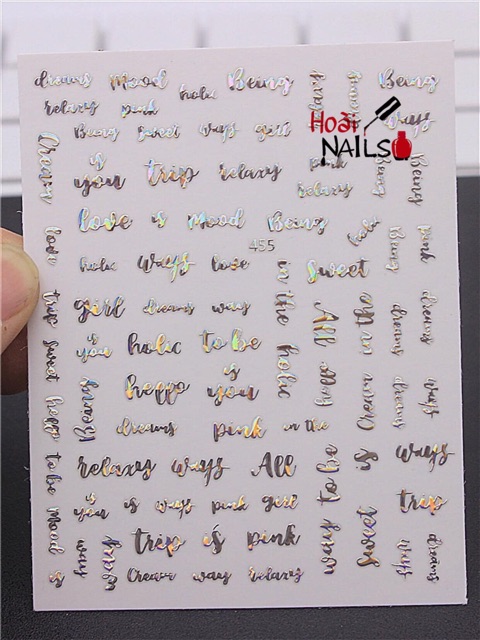 dreams Mood holic Being Being
relaxy pink
Hoài
NAILS
ways
Being sweet ways girl
is you trip relaxy pink
relaxy
Being
Being
love is Mood Being holic
455
holic ways love sweet
Being
pink
love
girl dreams way
in the holic
All
in the
dreams
dreams
trip
is you holic to be
sweet
heppo is you
Being
dreams
ways
dreams pink in the
relaxy ways All
to be
is
ways
heppo
to be
is you is ways pink girl
trip
Mood
is
trip is pink
way
sweet
ways
dreams
Cream way relaxy